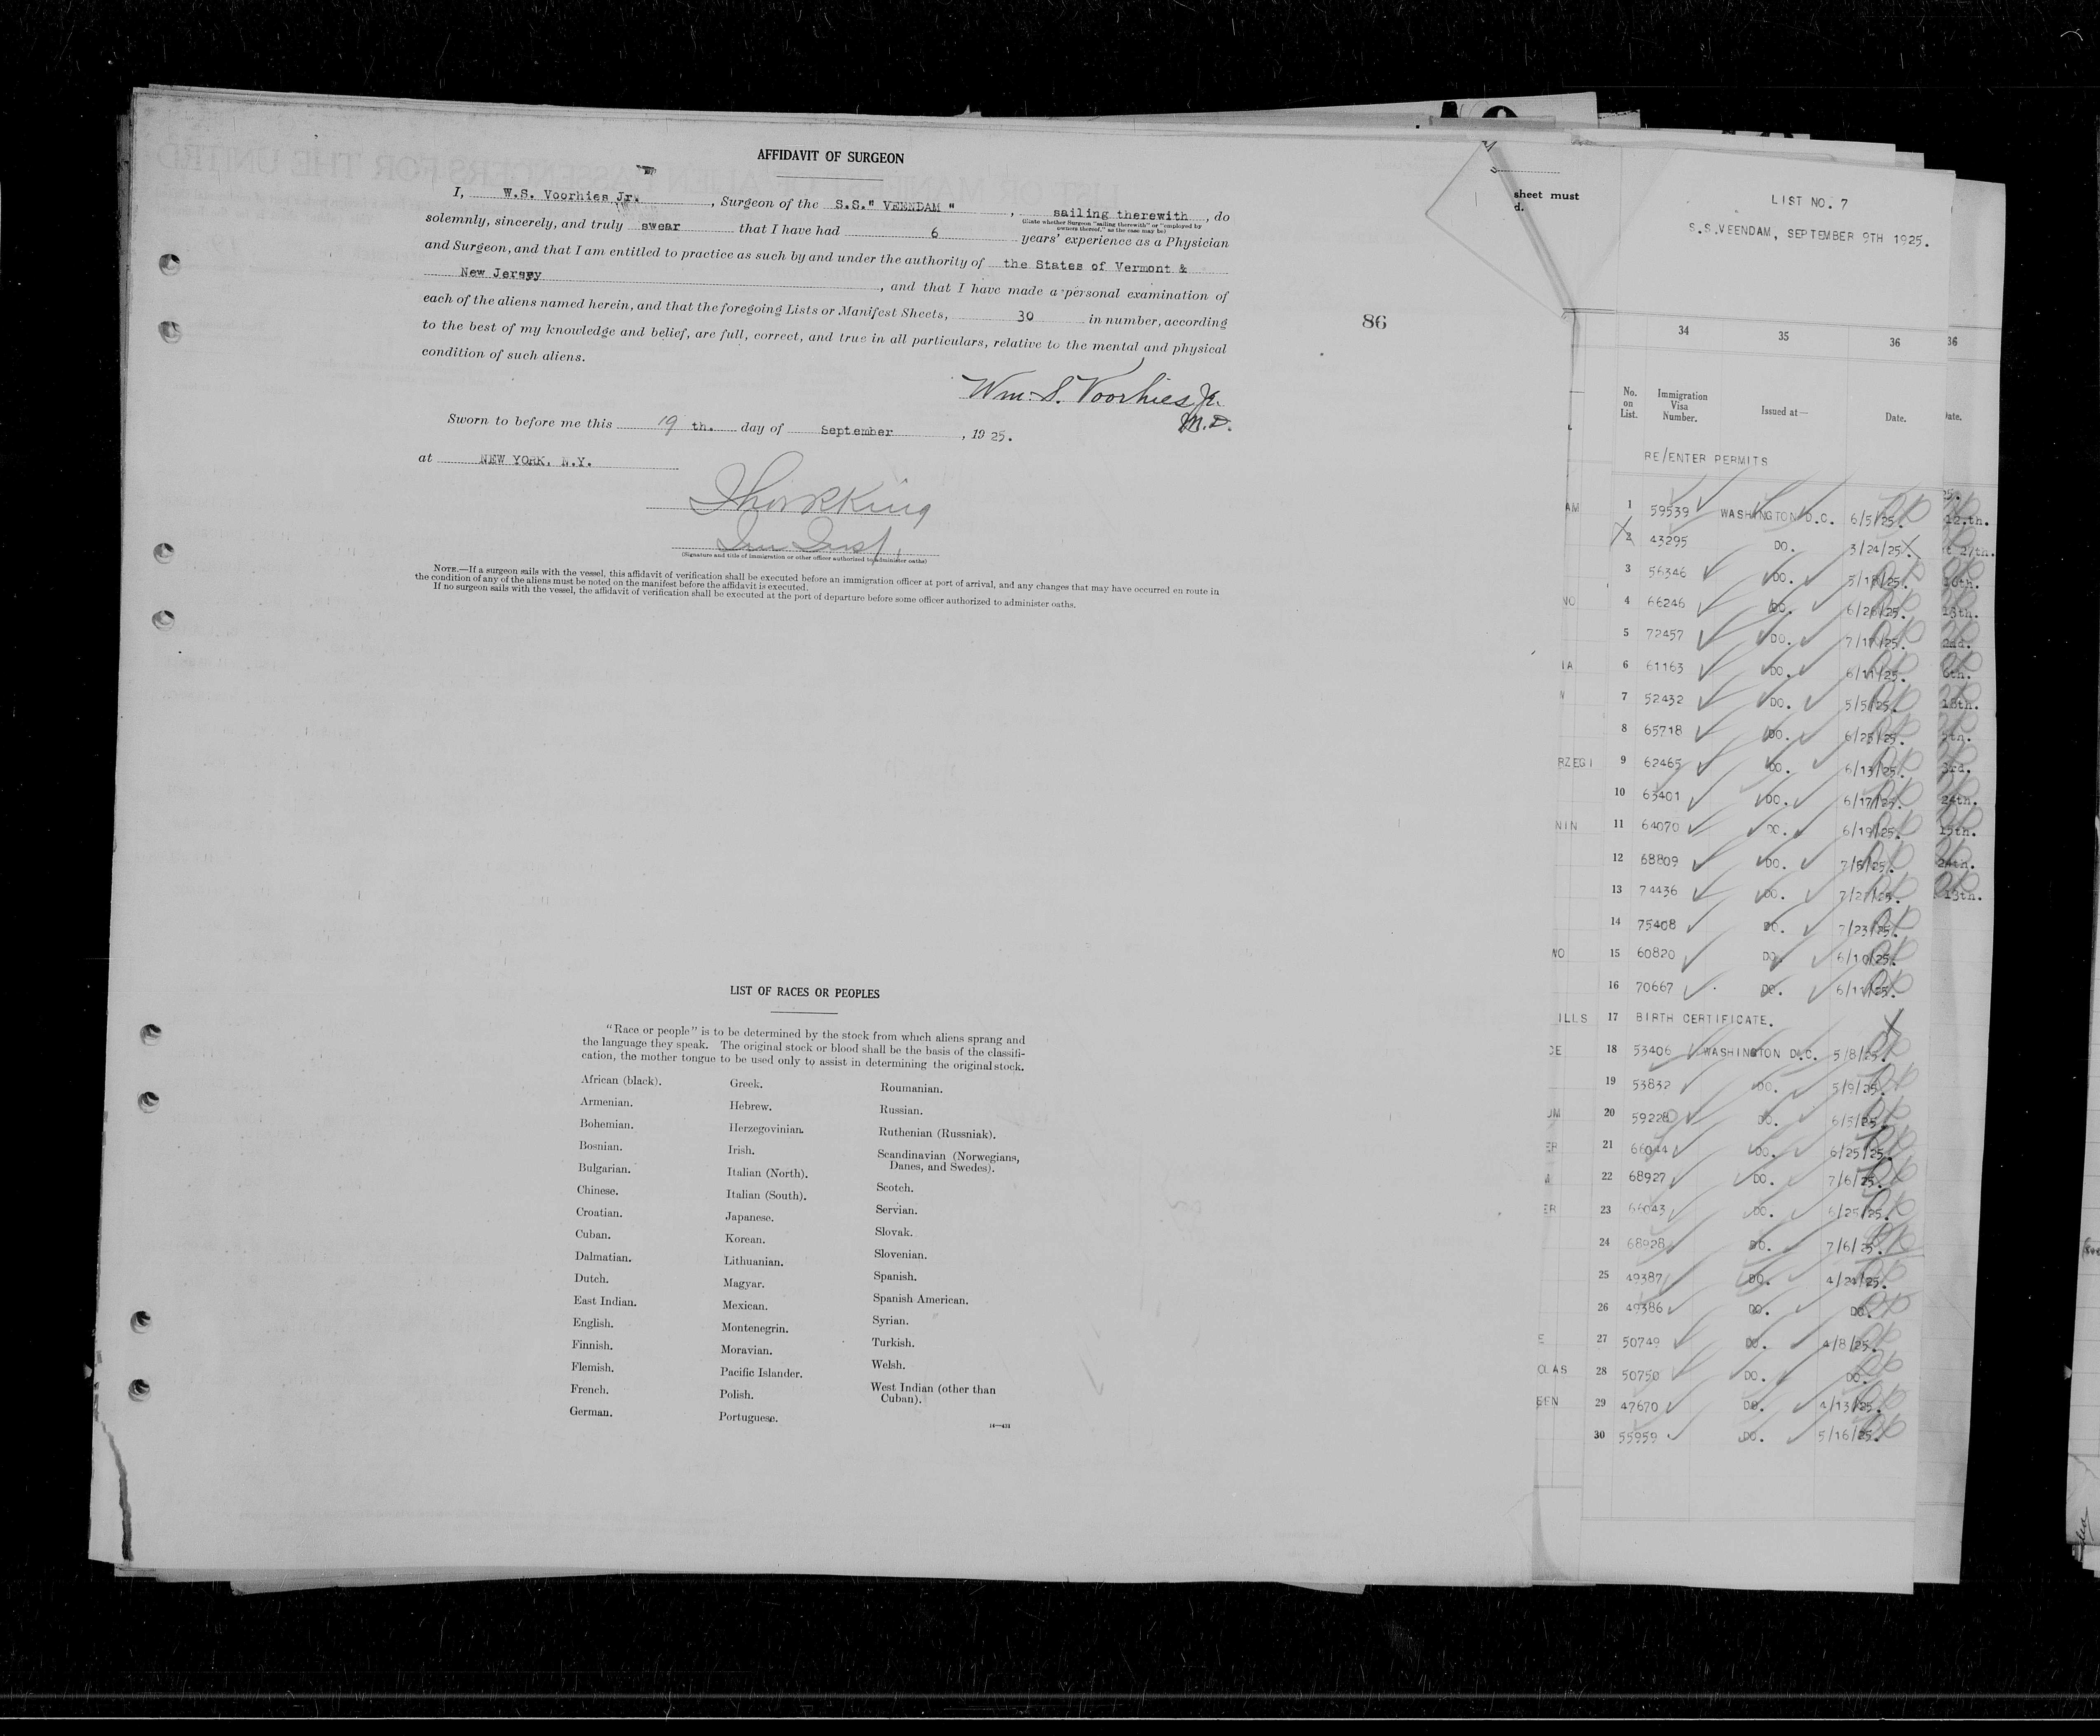 AFFIDAVIT OF SURGEON
I, W.S. Voorhies Jr. , Surgeon of the S.S." VEENDAM " , sailing therewith , do
(State whether Surgeon "sailing therewith" or "employed by
owners thereof," as the case may be)
solemnly, sincerely, and truly swear that I have had 6 years' experience as a Physician
and Surgeon, and that I am entitled to practice as such by and under the authority of the States of Vermont &
New Jersey , and that I have made a personal examination of
each of the aliens named herein, and that the foregoing Lists or Manifest Sheets, 30 in number, according
to the best of my knowledge and belief, are full, correct, and true in all particulars, relative to the mental and physical
condition of such aliens.
Wm. S. Voorhies Jr.
M.D.
Sworn to before me this 19 th. day of September , 19 25.
at NEW YORK, N.Y.
(Signature and title of immigration or other officer authorized to administer oaths)
NOTE.—If a surgeon sails with the vessel, this affidavit of verification shall be executed before an immigration officer at port of arrival, and any changes that may have occurred en route in
the condition of any of the aliens must be noted on the manifest before the affidavit is executed.
If no surgeon sails with the vessel, the affidavit of verification shall be executed at the port of departure before some officer authorized to administer oaths.
86
LIST OF RACES OR PEOPLES
"Race or people" is to be determined by the stock from which aliens sprang and
the language they speak. The original stock or blood shall be the basis of the classifi-
cation, the mother tongue to be used only to assist in determining the original stock.
African (black).
Armenian.
Bohemian.
Bosnian.
Bulgarian.
Chinese.
Croatian.
Cuban.
Dalmatian.
Dutch.
East Indian.
English.
Finnish.
Flemish.
French.
German.
Greek.
Hebrew.
Herzegovinian.
Irish.
Italian (North).
Italian (South).
Japanese.
Korean.
Lithuanian.
Magyar.
Mexican.
Montenegrin.
Moravian.
Pacific Islander.
Polish.
Portuguese.
Roumanian.
Russian.
Ruthenian (Russniak).
Scandinavian (Norwegians,
Danes, and Swedes).
Scotch.
Servian.
Slovak.
Slovenian.
Spanish.
Spanish American.
Syrian.
Turkish.
Welsh.
West Indian (other than
Cuban).
sheet must
d.
LIST NO. 7
S.S.VEENDAM, SEPTEMBER 9TH 1925.
34 35 36 36
No. on List. Immigration Visa Number. Issued at— Date.
RE/ENTER PERMITS
AM 1 59539 WASHINGTON D.C. 6/5/25. 12.th.
2 43295 DO. 3/24/25. 27/th.
3 56346 DO. 5/18/25. 16th.
NO 4 66246 DO. 6/26/25. 13th.
5 72457 DO. 7/17/25. 2nd.
IA 6 61163 DO. 6/11/25. 6th.
N 7 52432 DO. 5/5/25. 18th.
8 65718 DO. 6/25/25. 5th.
RZEGI 9 62465 DO. 6/13/25. 3rd.
10 63401 DO. 6/17/25. 24th.
NIN 11 64070 DO. 6/19/25. 15th.
12 68809 DO. 7/6/25. 24th.
13 74436 DO. 7/27/25. 13th.
14 75408 DO. 7/23/25.
NO 15 60820 DO. 6/10/25.
16 70667 DO. 6/11/25.
ILLS 17 BIRTH CERTIFICATE. X
CE 18 53406 WASHINGTON D.C. 5/8/25.
19 53832 DO. 5/9/25.
UM 20 59228 DO. 6/5/25.
ER 21 66044 DO. 6/25/25.
M 22 68927 DO. 7/6/25.
ER 23 66043 DO. 6/25/25.
24 68928 DO. 7/6/25.
25 49387 DO. 4/24/25.
26 49386 DO. DO.
E 27 50749 DO. 4/8/25.
OLAS 28 50750 DO. DO.
EEN 29 47670 DO. 4/13/25.
30 55959 DO. 5/16/25.